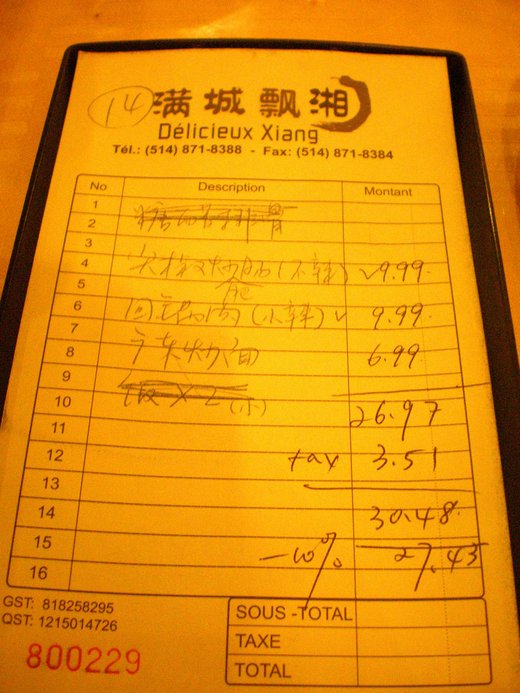 14 满城飘湘
Délicieux Xiang
Tél.: (514) 871-8388 - Fax: (514) 871-8384
No Description Montant
1
2 糖 排骨
3
4 尖椒 (不辣) √ 9.99
5
6 回 肉 (小辣) √ 9.99
7
8 广东炒面 6.99
9
饭 X 2 (小)
10 26.97
11
12 tax 3.51
13
14 30.48
15 -10% 27.43
16
GST: 818258295
QST: 1215014726
SOUS -TOTAL
TAXE
TOTAL
800229